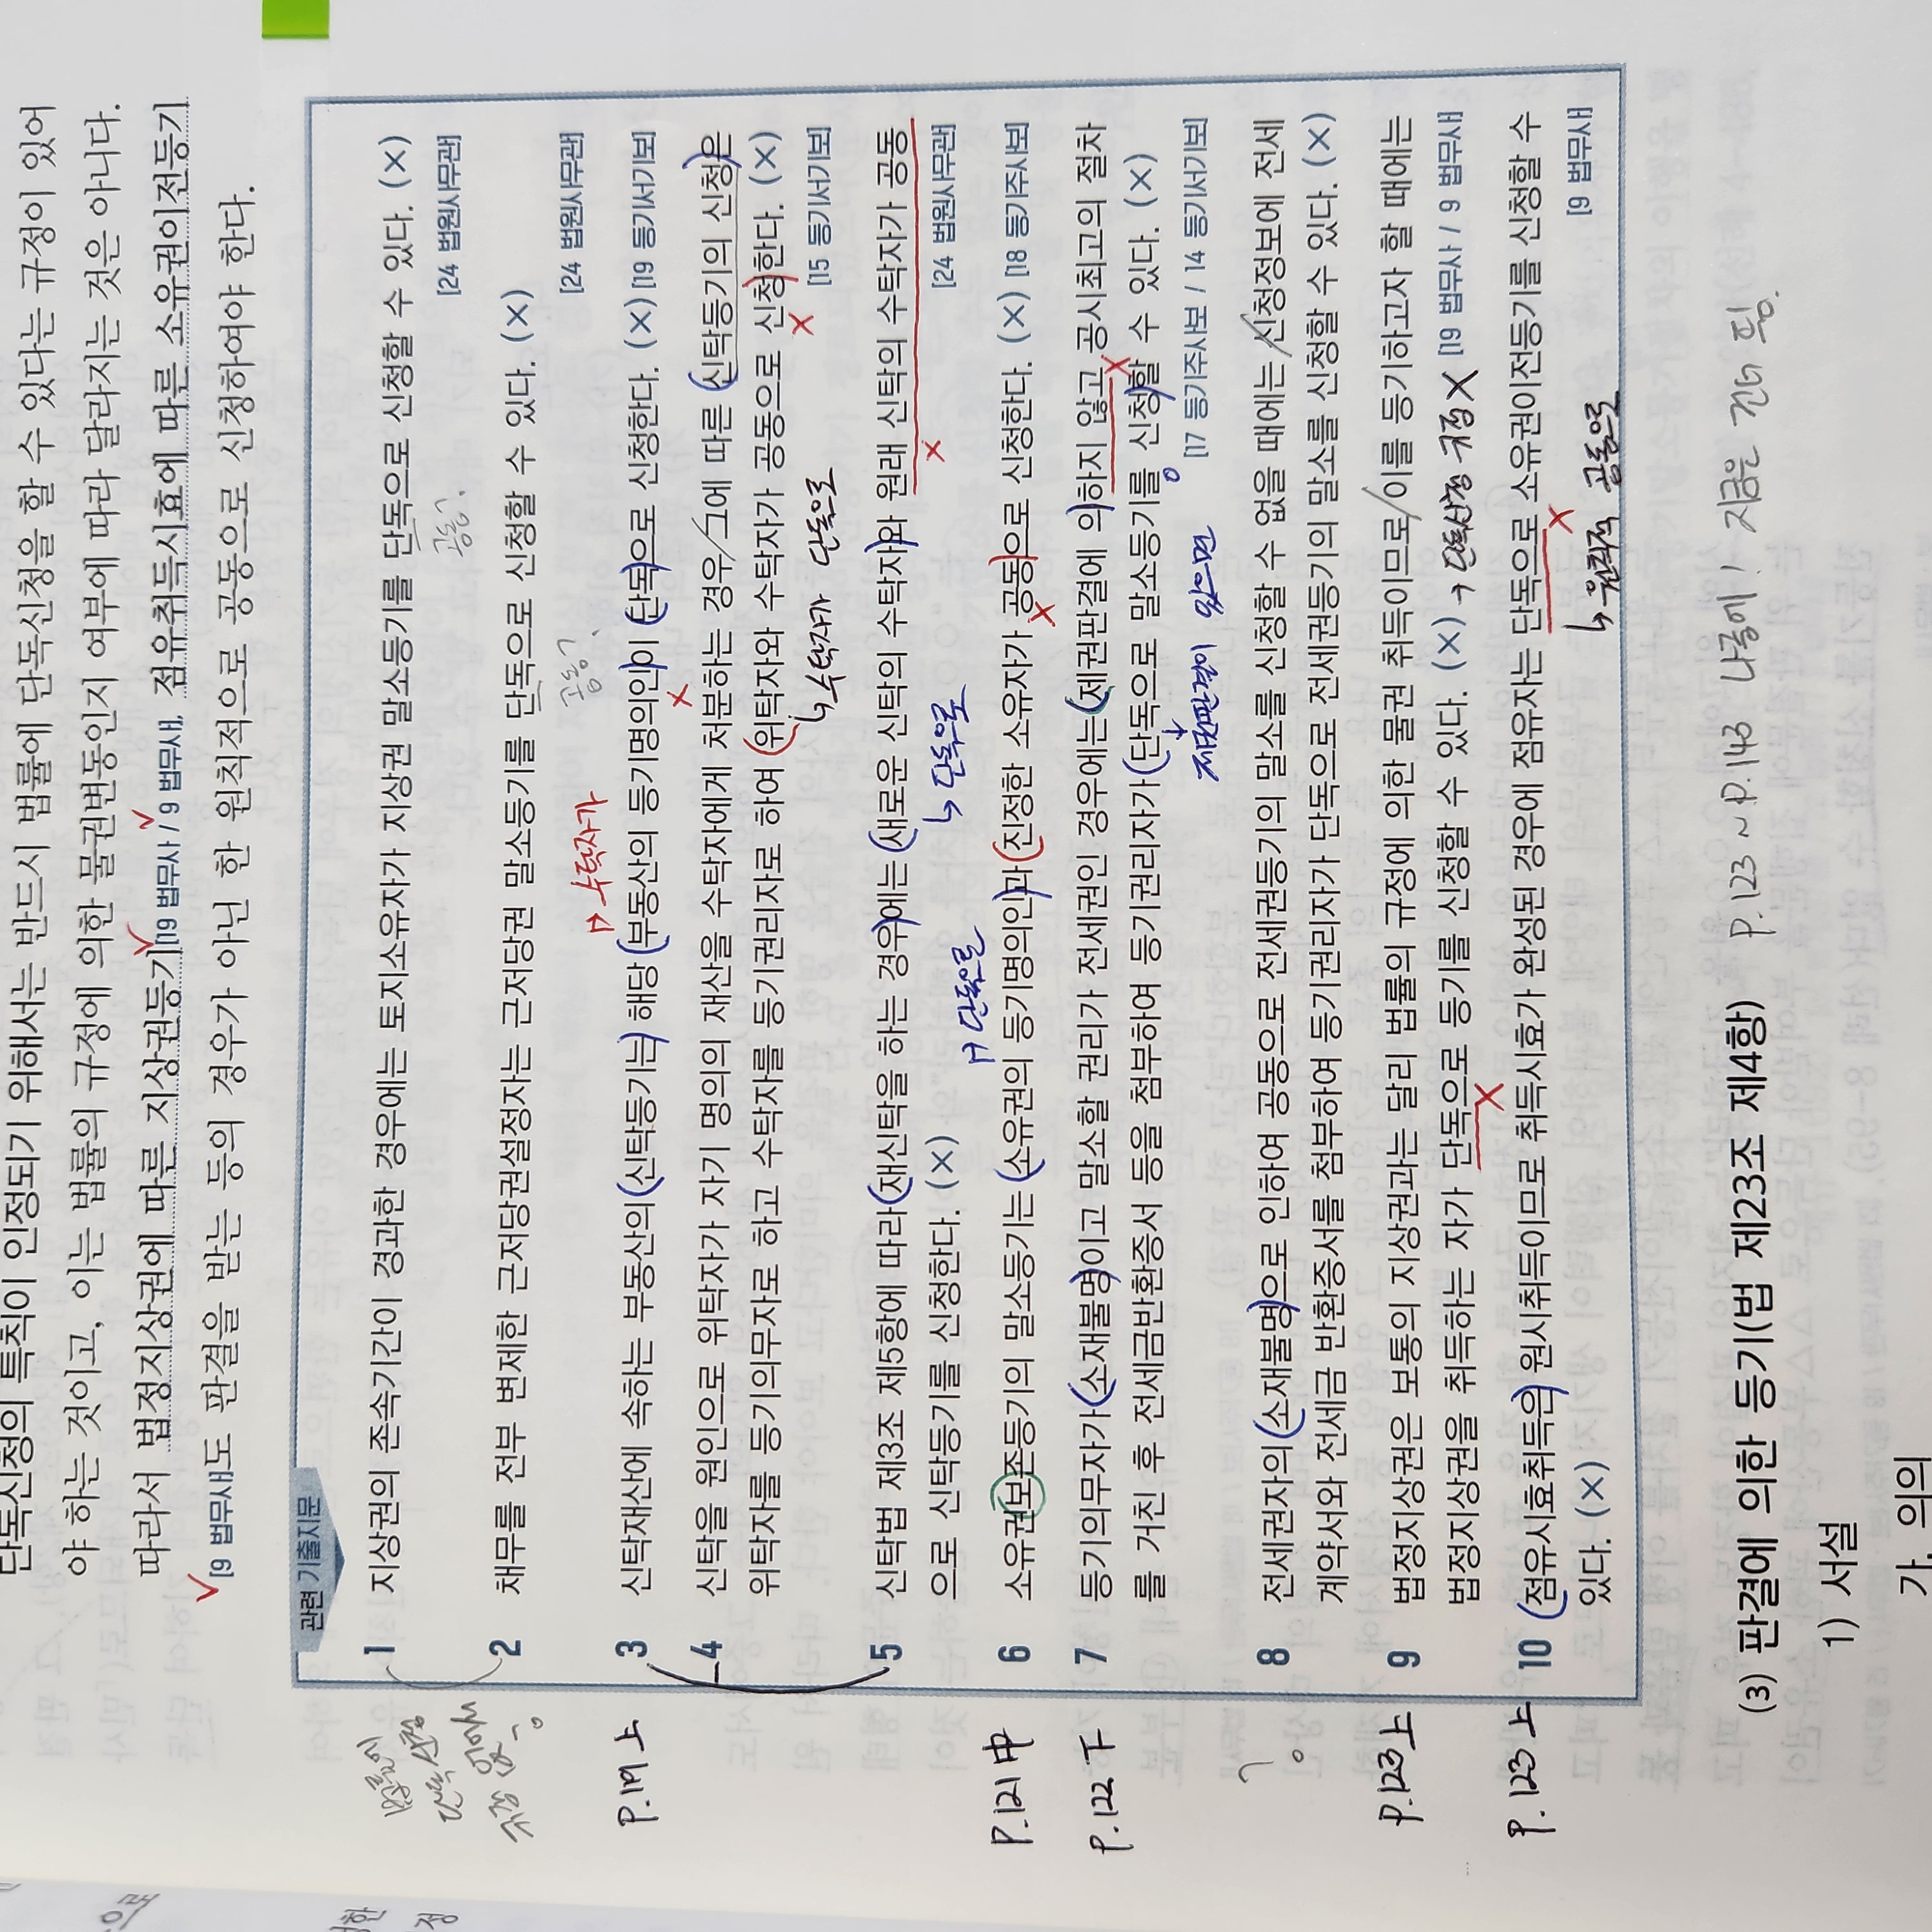 단독신청의 특칙이 인정되기 위해서는 반드시 법률에 단독신청을 할 수 있다는 규정이 있어
야 하는 것이고, 이는 법률의 규정에 의한 물권변동인지 여부에 따라 달라지는 것은 아니다.
따라서 법정지상권에 따른 지상권등기[19 법무사 / 9 법무새, 점유취득시효에 따른 소유권이전등기
[9 법무새도 판결을 받는 등의 경우가 아닌 한 원칙적으로 공동으로 신청하여야 한다.
관련 기출지문
1 지상권의 존속기간이 경과한 경우에는 토지소유자가 지상권 말소등기를 단독으로 신청할 수 있다. (×)
공동?
[24 법원사무관]
2 채무를 전부 변제한 근저당권설정자는 근저당권 말소등기를 단독으로 신청할 수 있다. (×)
공동?
[24 법원사무관]
법률에
단독신청
규정 없어서
→ 수탁자가
P.119 上
3 신탁재산에 속하는 부동산의 (신탁등기는) 해당 (부동산의 등기명의인)이 (단독)으로 신청한다. (×) [19 등기서기보]
4 신탁을 원인으로 위탁자가 자기 명의의 재산을 수탁자에게 처분하는 경우/그에 따른 (신탁등기의 신청)은
위탁자를 등기의무자로 하고 수탁자를 등기권리자로 하여 (위탁자와 수탁자가 공동으로 신청)한다. (×)
↳ 수탁자가 단독으로
[15 등기서기보]
5 신탁법 제3조 제5항에 따라 (재신탁을 하는 경우)에는 (새로운 신탁의 수탁자)와 원래 신탁의 수탁자가 공동
으로 신탁등기를 신청한다. (×)
↳ 단독으로
[24 법원사무관]
→ 단독으로
P.121 中
6 소유권보존등기의 말소등기는 (소유권의 등기명의인)과 (진정한 소유자가 공동)으로 신청한다. (×) [18 등기주사보]
P.122 下
7 등기의무자가 (소재불명)이고 말소할 권리가 전세권인 경우에는 (제권판결에 의)하지 않고 공시최고의 절차
를 거친 후 전세금반환증서 등을 첨부하여 등기권리자가 (단독으로 말소등기를 신청)할 수 있다. (×)
제권판결이 있으면
[17 등기주사보 / 14 등기서기보]
8 전세권자의 (소재불명)으로 인하여 공동으로 전세권등기의 말소를 신청할 수 없을 때에는/신청정보에 전세
계약서와 전세금 반환증서를 첨부하여 등기권리자가 단독으로 전세권등기의 말소를 신청할 수 있다. (×)
P.123 上
9 법정지상권은 보통의 지상권과는 달리 법률의 규정에 의한 물권 취득이므로/이를 등기하고자 할 때에는
법정지상권을 취득하는 자가 단독으로 등기를 신청할 수 있다. (×) → 단독신청 규정 X [19 법무사 / 9 법무새
P.123 上
10 (점유시효취득은) 원시취득이므로 취득시효가 완성된 경우에 점유자는 단독으로 소유권이전등기를 신청할 수
있다. (×)
↳ 원칙적 공동으로
[9 법무새
(3) 판결에 의한 등기(법 제23조 제4항) P.123 ~ P.143 나중에! 지금은 건너 뜀.
1) 서설
가. 의의